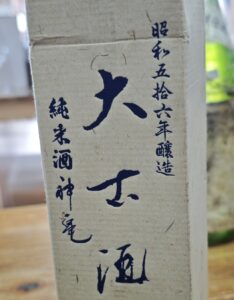 昭和五拾六年醸造
大古酒
純米酒神亀